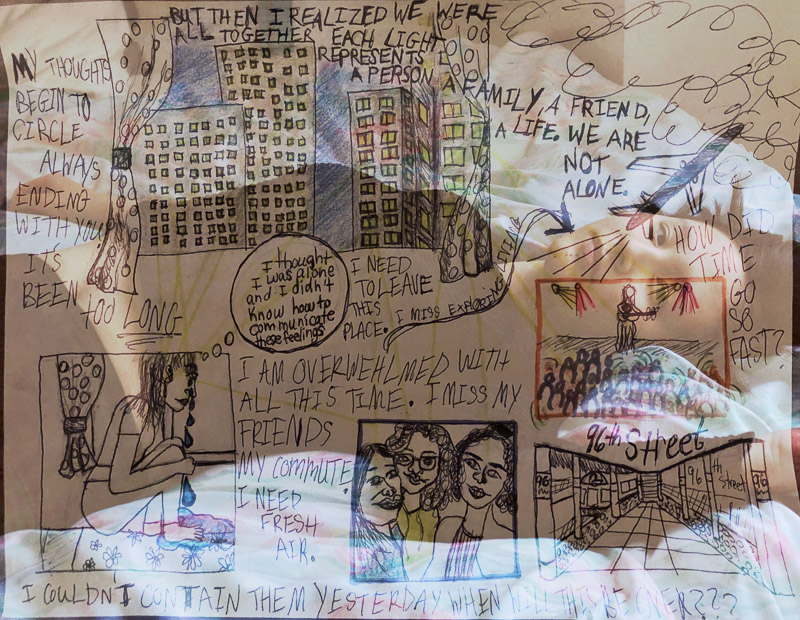 BUT THEN I REALIZED WE WERE
ALL TOGETHER EACH LIGHT
REPRESENTS
A PERSON A FAMILY, A FRIEND,
A LIFE. WE ARE
NOT
ALONE.
MY THOUGHTS
BEGIN TO
CIRCLE
ALWAYS
ENDING
WITH YOU
IT'S
BEEN TOO LONG
I thought
I was alone
and I didn't
know how to
communicate
these feelings
I NEED
TO LEAVE
THIS
PLACE.
I MISS EXPLORING
HOW DID
TIME
GO
SO
FAST?
I AM OVERWEHLMED WITH
ALL THIS TIME. I MISS MY
FRIENDS
MY COMMUTE
I NEED
FRESH
AIR.
96th Street
96
96
th
Street
96
I COULDN'T CONTAIN THEM YESTERDAY WHEN WILL THIS BE OVER???